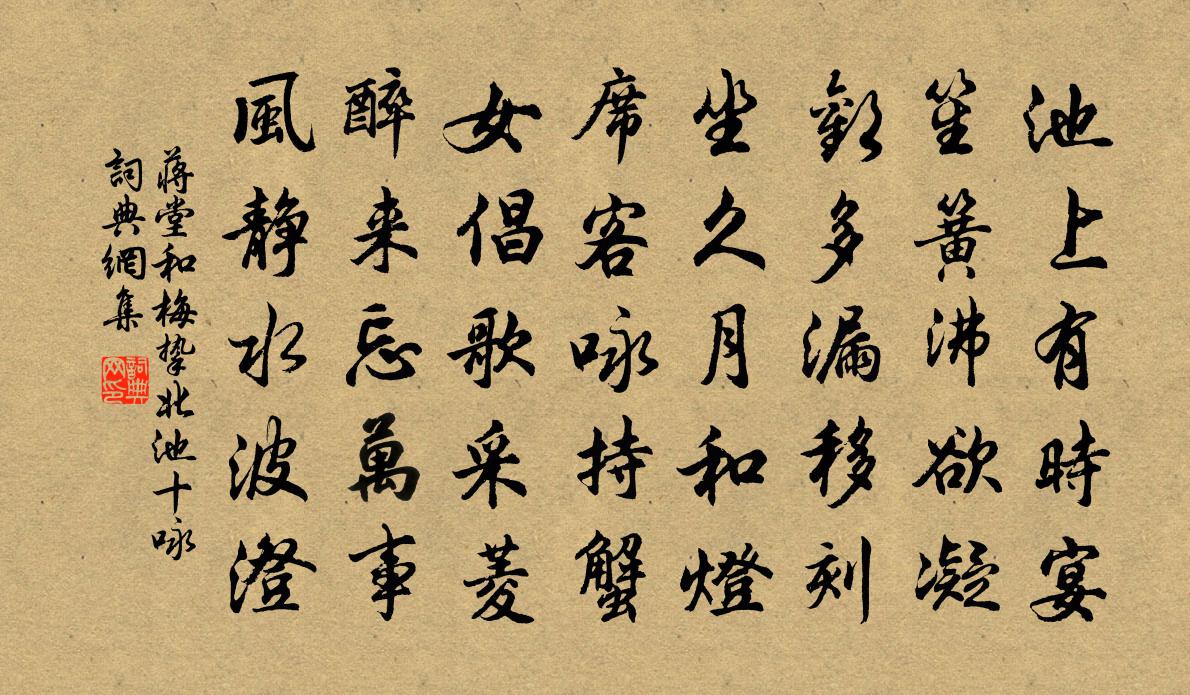 池上有時宴
笙簧沸欲凝
歡多漏移刻
坐久月和燈
席客咏持蟹
女倡歌采菱
醉来忘萬事
風靜水波澄
蔣堂和梅挚北池十咏
詞典網集
詞典
网印